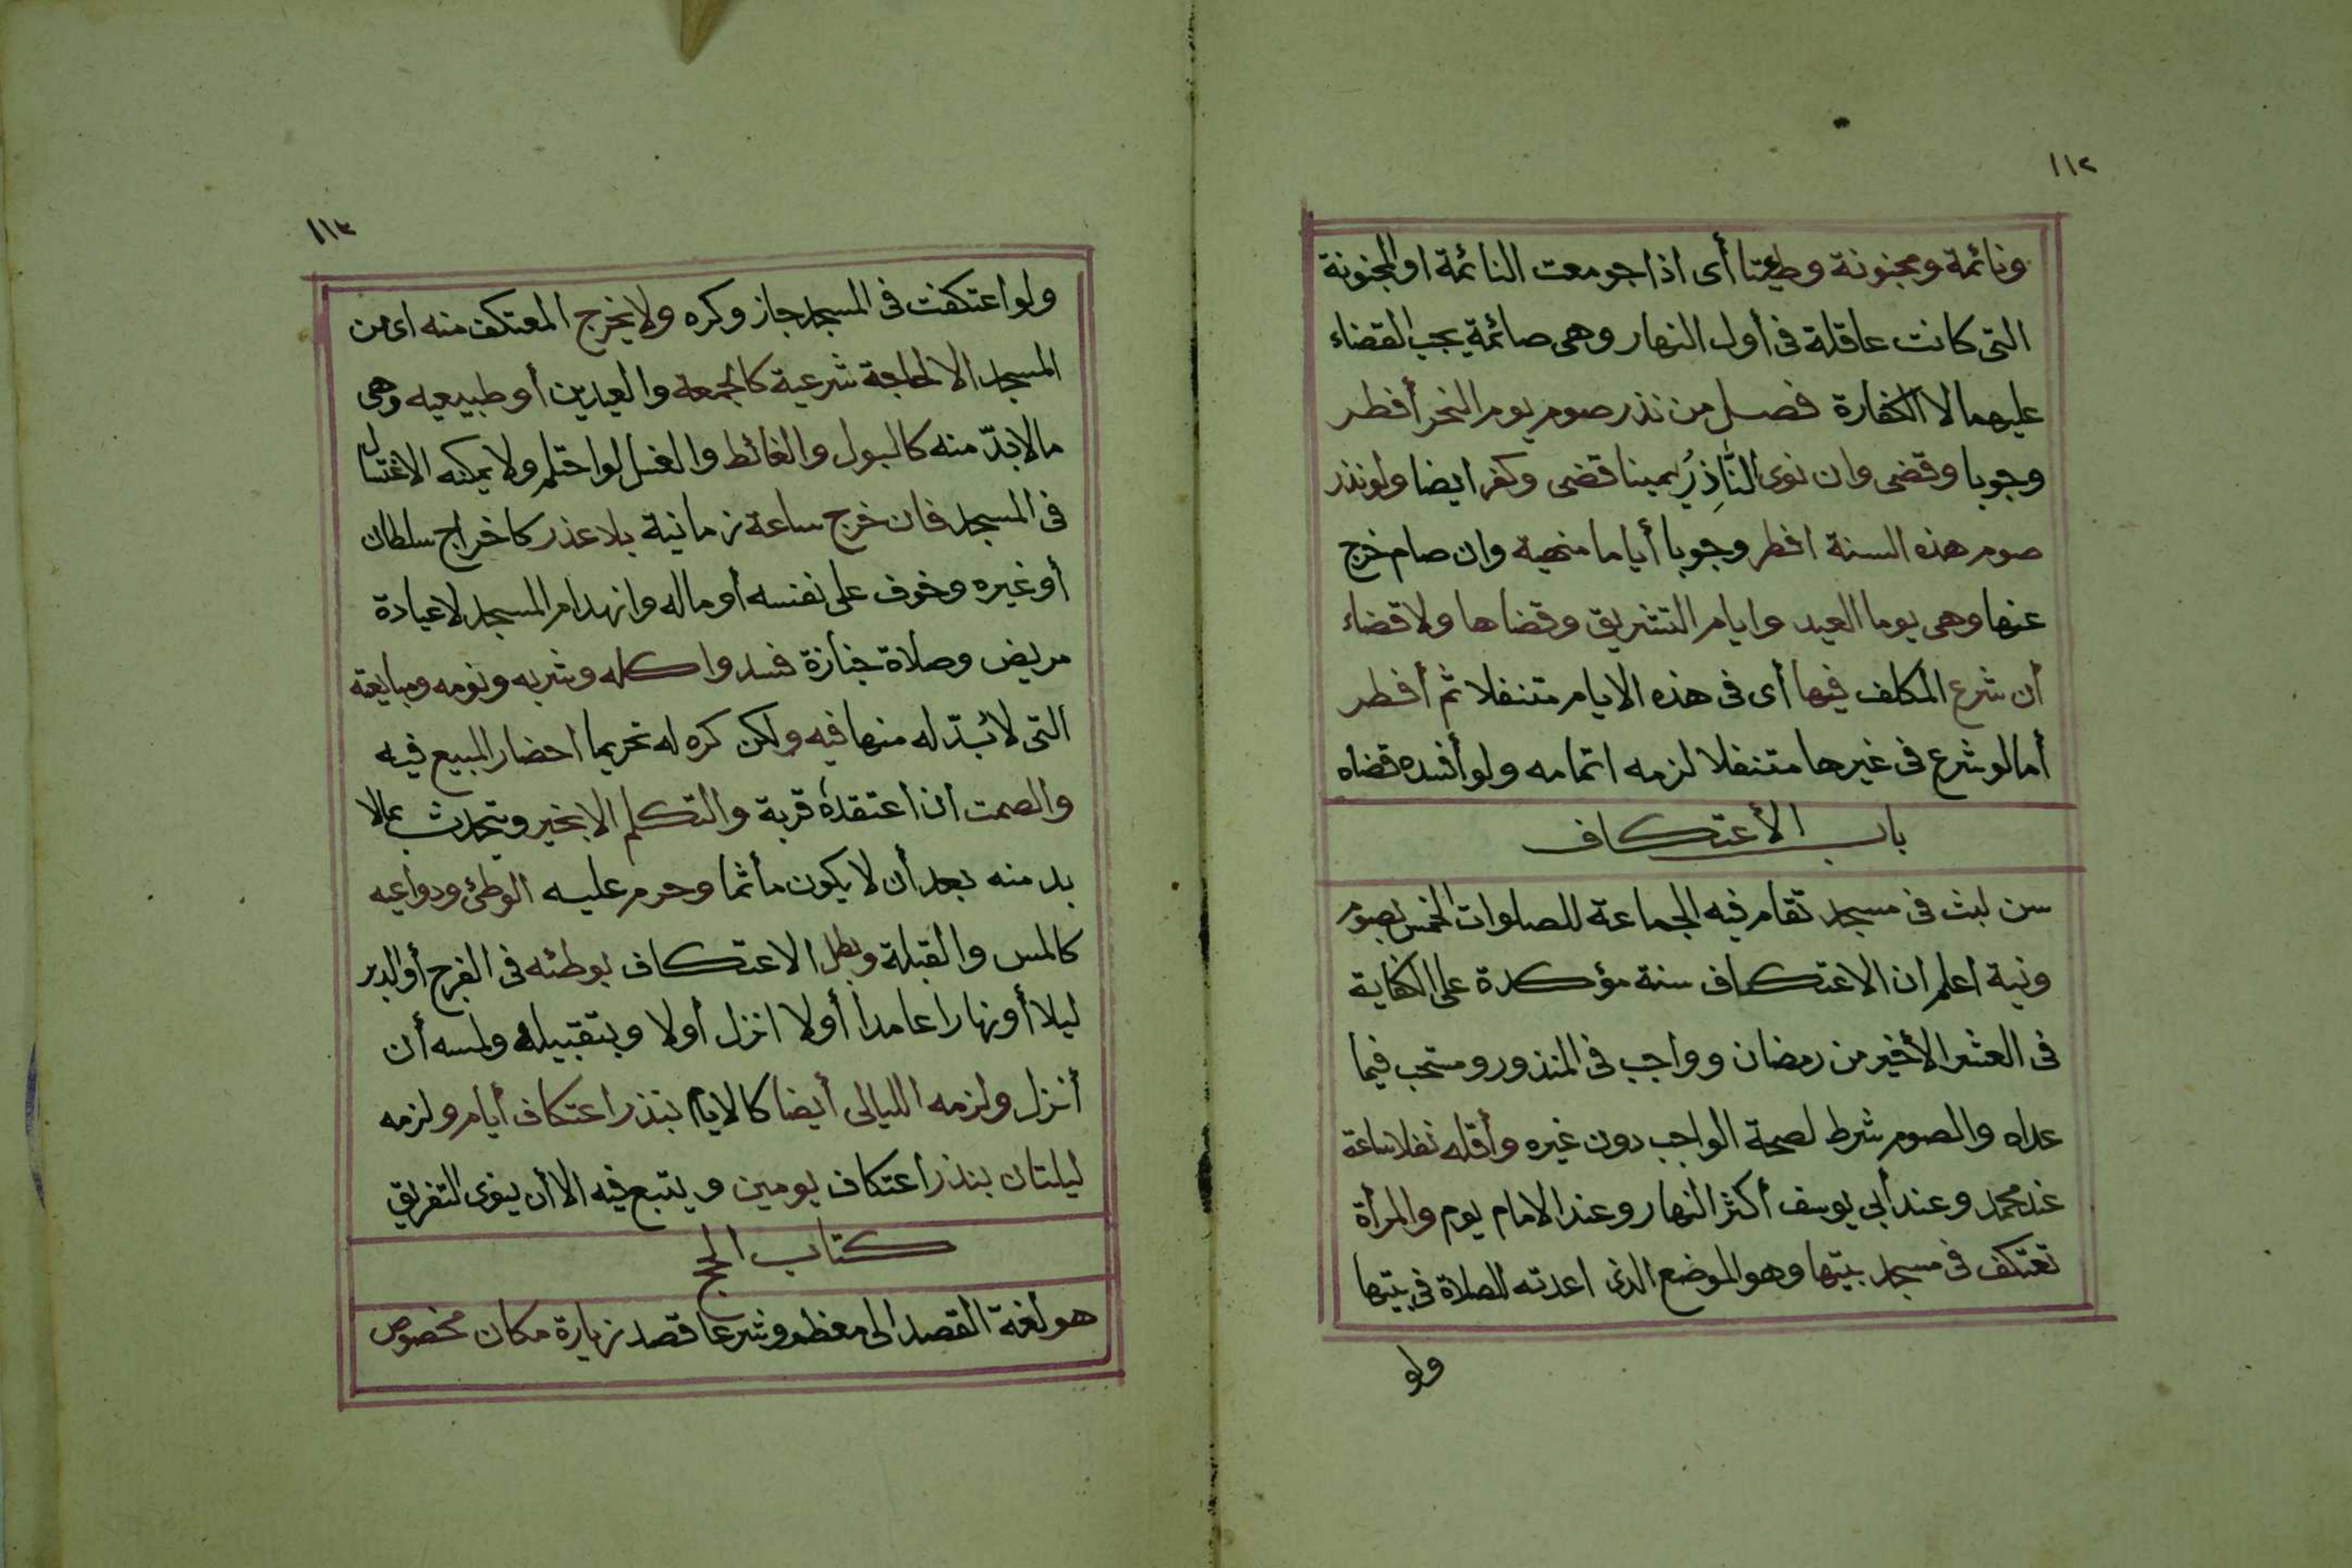 ١١٢
ونائمة ومجنونة وطئتا أى اذا جومعت النائمة او المجنونة
التى كانت عاقلة فى أول النهار وهى صائمة يجب القضاء
عليهما لا الكفارة فصل من نذر صوم يوم النحر أفطر
وجوبا وقضى وان نوى النَّاذِرُ يمينا قضى وكفر ايضا ولو نذر
صوم هذه السنة افطر وجوبا أياما منهية وان صام خرج
عنها وهى يوما العيد وايام التشريق وقضاها ولا قضاء
أن شرع المكلف فيها أى فى هذه الايام متنفلا ثم أفطر
أما لو شرع فى غيرها متنفلا لزمه اتمامه ولو أفسده قضاه
باب الأعتكاف
سن لبث فى مسجد تقام فيه الجماعة للصلوات الخمس بصوم
ونية اعلم ان الاعتكاف سنة مؤكدة على الكفاية
فى العشر الأخير من رمضان وواجب فى المنذور ومستحب فيما
عداه والصوم شرط لصحة الواجب دون غيره وأقله نفلا ساعة
عند محمد وعند أبي يوسف أكثر النهار وعند الامام يوم والمرأة
تعتكف فى مسجد بيتها وهو الموضع الذى اعدته للصلاة فى بيتها
ولو
١١٣
ولو اعتكفت فى المسجد جاز وكره ولا يخرج المعتكف منه اى من
المسجد الا لحاجة شرعية كالجمعة والعيدين أو طبيعيه وهى
مالا بدّ منه كالبول والغائط والغسل لو احتلم ولا يمكنه الاغتسال
فى المسجد فان خرج ساعة زمانية بلا عذر كاخراج سلطان
أو غيره وخوف على نفسه أو ماله وانهدام المسجد لا عيادة
مريض وصلاة جنازة فسد واكله وشربه ونومه ومبايعته
التى لا بُدّ له منها فيه ولكن كره له تحريما احضار المبيع فيه
والصمت ان اعتقده قربة والتكلم الا بخير ويتحدث بمالا
بد منه بعد أن لا يكون مأثما وحرم عليه الوطئ ودواعيه
كالمس والقبلة وبطل الاعتكاف بوطئه فى الفرج أو الدبر
ليلا أو نهارا عامدا أو لا انزل أولا وبتقبيله ولمسه أن
أنزل ولزمه الليالى أيضا كالايام بنذر اعتكاف أيام ولزمه
ليلتان بنذر اعتكاف يومين ويتبع فيه الا أن ينوى التفريق
كتاب الحج
هو لغة القصد الى معظم وشرعا قصد زيارة مكان مخصوص